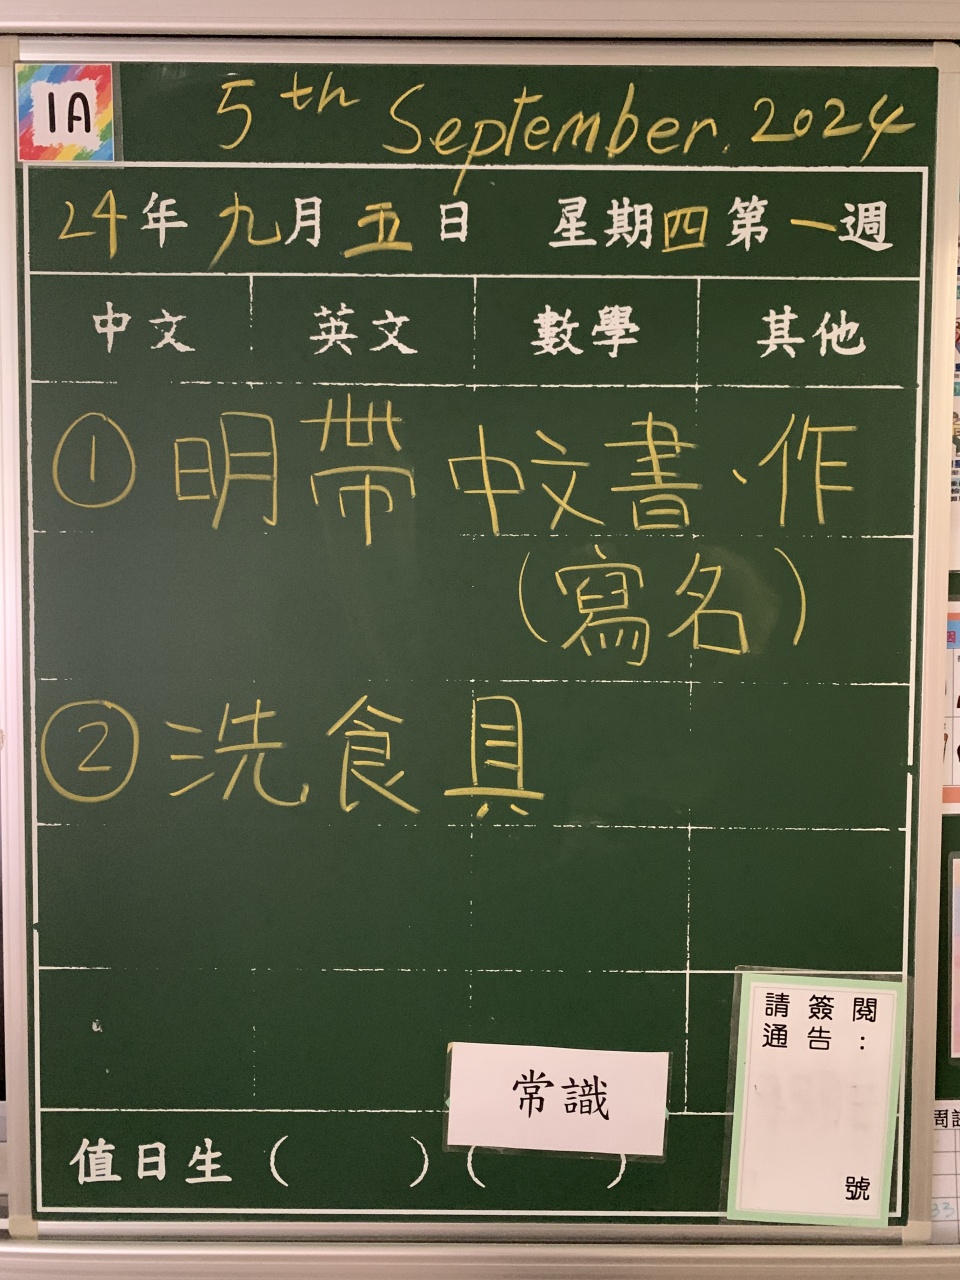 1A
5th September. 2024
24年 九月 五日 星期四 第一週
中文 英文 數學 其他
① 明帶中文書、作
(寫名)
② 洗食具
請簽閱
通告：
號
常識
值日生 ( ) ( )
周
33